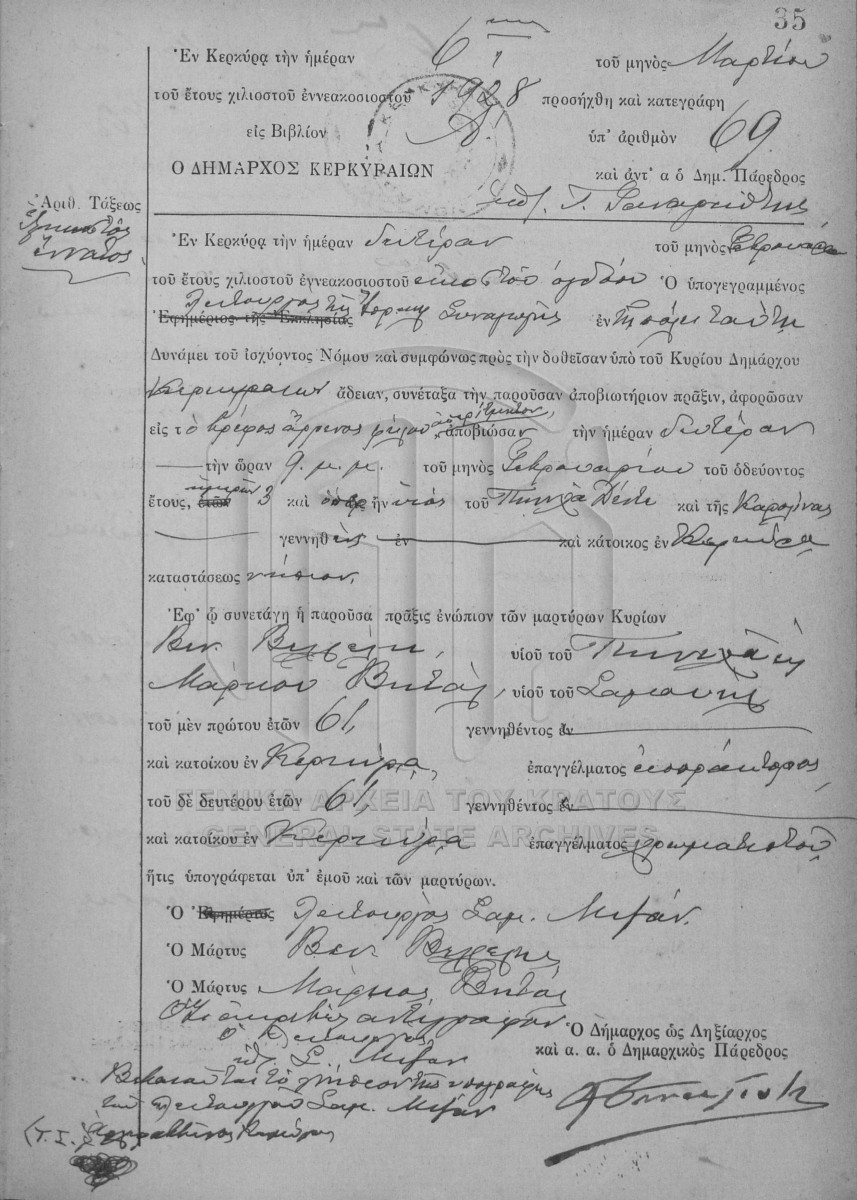 35
Ἐν Κερκύρᾳ τὴν ἡμέραν 6 τοῦ μηνὸς Μαρτίου
τοῦ ἔτους χιλιοστοῦ ἐννεακοσιοστοῦ 1928 προσήχθη καὶ κατεγράφη
εἰς Βιβλίον Α'. ὑπ' ἀριθμὸν 69
Ο ΔΗΜΑΡΧΟΣ ΚΕΡΚΥΡΑΙΩΝ καὶ ἀντ' α ὁ Δημ. Πάρεδρος
Ἀριθ. Τάξεως
ἑξηκοστὸς
ἔννατος
Ἐν Κερκύρᾳ τὴν ἡμέραν δευτέραν τοῦ μηνὸς Φεβρουαρίου
τοῦ ἔτους χιλιοστοῦ ἐγνεακοσιοστοῦ εἰκοστοῦ ὀγδόου Ὁ ὑπογεγραμμένος
Λειτουργὸς τῆς Ἑβρ. Συναγωγῆς
Ἐφημέριος τῆς Ἐκκλησίας ἐν τῇ πόλει ταύτῃ
Δυνάμει τοῦ ἰσχύοντος Νόμου καὶ συμφώνως πρὸς τὴν δοθεῖσαν ὑπὸ τοῦ Κυρίου Δημάρχου
Κερκυραίων ἄδειαν, συνέταξα τὴν παροῦσαν ἀποβιωτήριον πρᾶξιν, ἀφορῶσαν
εἰς τὸ βρέφος ἄρρενος φύλου ἀποβιῶσαν τὴν ἡμέραν δευτέραν
τὴν ὥραν 9 μ.μ. τοῦ μηνὸς Φεβρουαρίου τοῦ ὁδεύοντος
ἔτους, ἡμερῶν ἐτῶν 3 καὶ ὅπερ ἦν υἱὸς τοῦ Πινχᾶ Δέντε καὶ τῆς Καρολίνας
γεννηθὲν ἐν καὶ κάτοικος ἐν Κερκύρᾳ
καταστάσεως νήπιον,
Ἐφ' ᾧ συνετάγη ἡ παροῦσα πρᾶξις ἐνώπιον τῶν μαρτύρων Κυρίων
Βεν. Βελλέλη, υἱοῦ τοῦ
Μάρκου Βιτάλ, υἱοῦ τοῦ Σαμουὴλ
τοῦ μὲν πρώτου ἐτῶν 61, γεννηθέντος ἐν
καὶ κατοίκου ἐν Κερκύρᾳ, ἐπαγγέλματος εἰσπράκτορος,
τοῦ δὲ δευτέρου ἐτῶν 61, γεννηθέντος ἐν
καὶ κατοίκου ἐν Κερκύρᾳ ἐπαγγέλματος χρωματιστοῦ,
ἥτις ὑπογράφεται ὑπ' ἐμοῦ καὶ τῶν μαρτύρων.
Ὁ Ἐφημέριος Λειτουργὸς Σαμ. Μιζάν.
Ὁ Μάρτυς Βεν. Βελλέλης
Ὁ Μάρτυς Μάρκος Βιτάλ
Ὅτι ἀκριβὲς ἀντίγραφον
Ὁ Λειτουργὸς
Σ. Μιζάν
Ὁ Δήμαρχος ὡς Ληξίαρχος
καὶ α. α. ὁ Δημαρχικὸς Πάρεδρος
Βεβαιοῦται τὸ γνήσιον τῆς ὑπογραφῆς
τοῦ Λειτουργοῦ Σαμ. Μιζάν
(Τ.Σ.)
ΓΕΝΙΚΑ ΑΡΧΕΙΑ ΤΟΥ ΚΡΑΤΟΥΣ
GENERAL STATE ARCHIVES